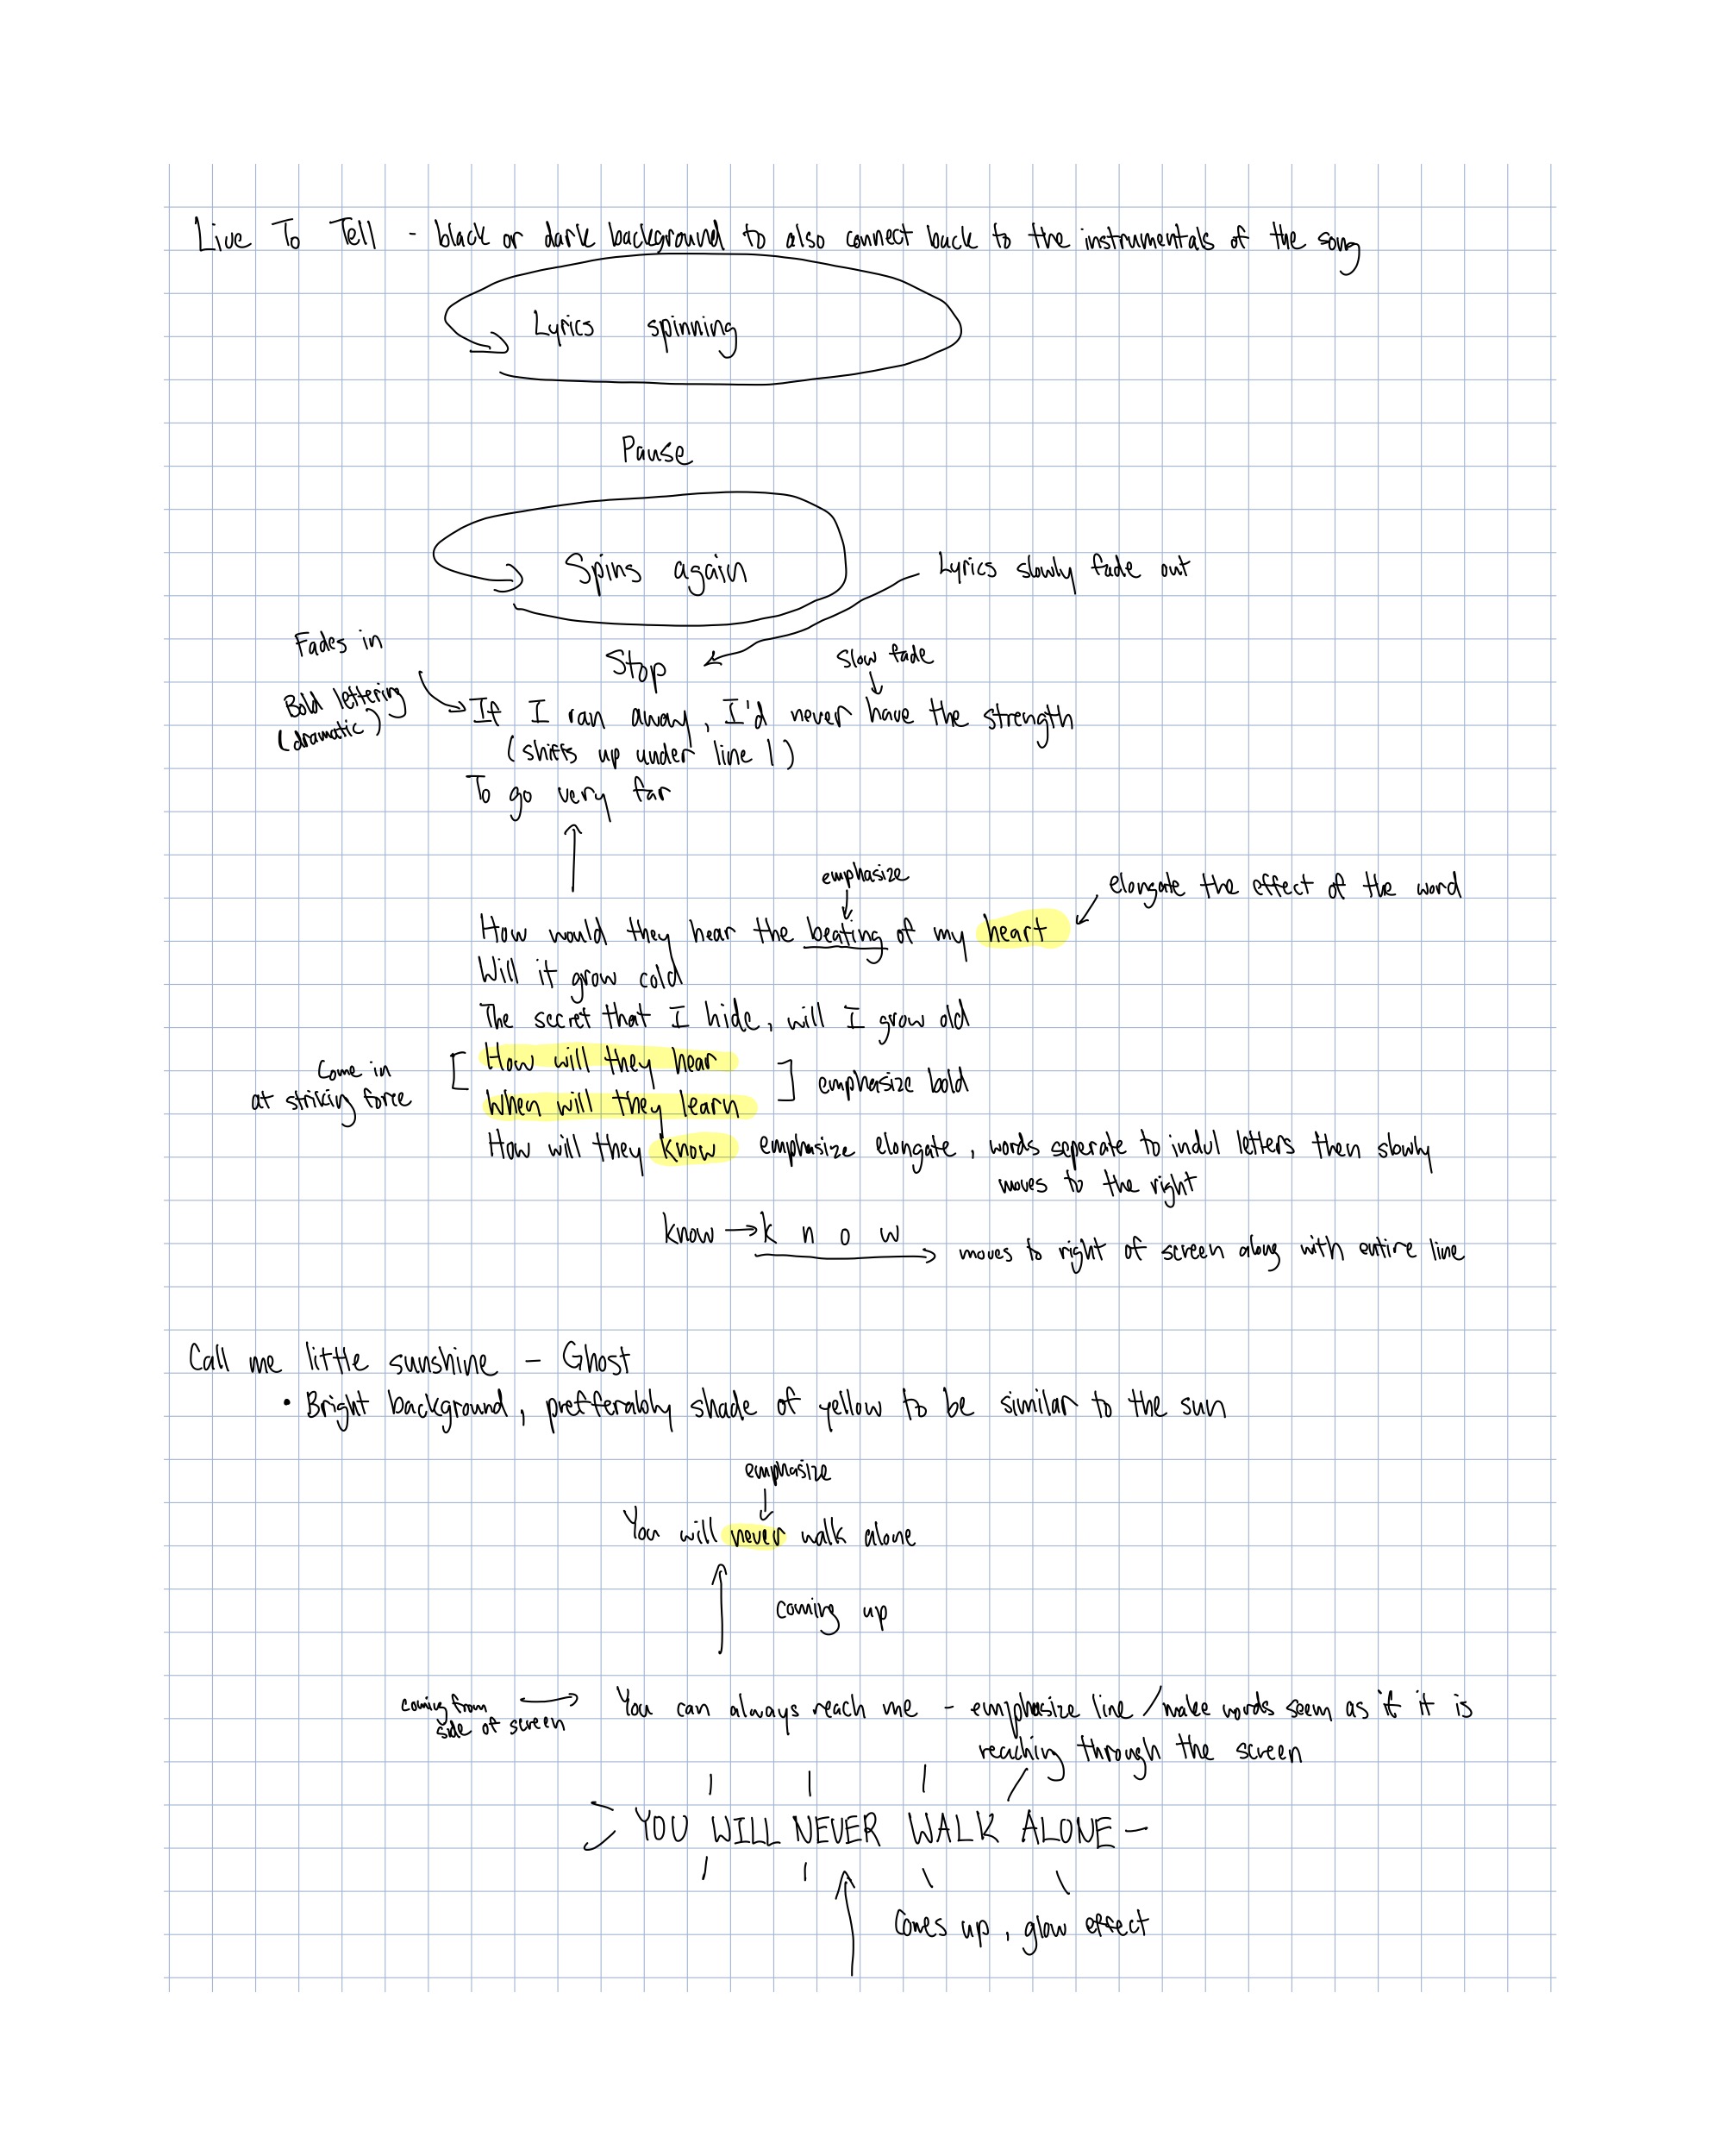 Live To Tell - black or dark background to also connect back to the instrumentals of the song
Lyrics spinning
Pause
Spins again
Lyrics slowly fade out
Fades in
Stop
slow fade
Bold lettering
(dramatic)
If I ran away, I'd never have the strength
(shifts up under line 1)
To go very far
emphasize
elongate the effect of the word
How would they hear the beating of my heart
Will it grow cold
The secret that I hide, will I grow old
Come in
at striking force
[ How will they hear
When will they learn ] emphasize bold
How will they know emphasize elongate, words seperate to indul letters then slowly
moves to the right
know → k n o w
moves to right of screen along with entire line
Call me little sunshine - Ghost
• Bright background, prefferably shade of yellow to be similar to the sun
emphasize
You will never walk alone
coming up
coming from
side of screen
You can always reach me - emphasize line / make words seem as if it is
reaching through the screen
YOU WILL NEVER WALK ALONE
Comes up, glow effect